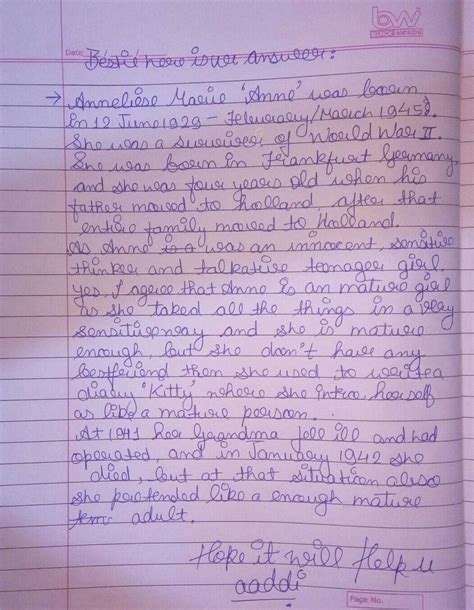 bw
Date
Bestie here is ur answer:
→ Anneliese Marie 'Anne' was born
in 12 June 1929 - February/March 1945.
She was a surviver of World War II.
She was born in Frankfurt Germany,
and she was four years old when his
father moved to Holland after that
entire family moved to Holland.
As Anne is a was an innocent, sensitive
thinker and talkative teenager girl.
Yes, I agree that Anne is an mature girl
as she taked all the things in a very
sensitive way and she is mature
enough, but she don't have any
bestfriend then she used to write a
diary 'Kitty' where she intro herself
as like a mature person.
At 1941 her Grandma fell ill and had
operated, and in January 1942 she
died, but at that sitvation also
she pretended like a enough mature
adult.
Hope it will Help u
aaddi
Page No.